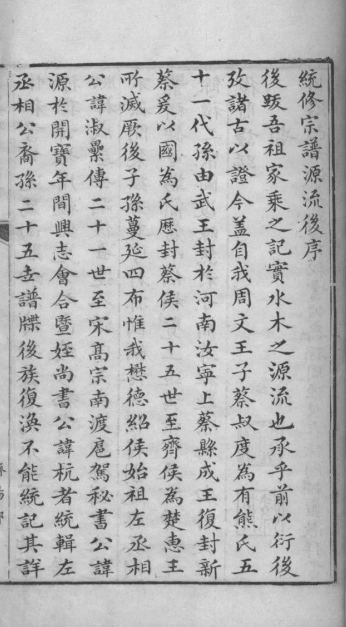 統修宗譜源流後序
後跋吾祖家乘之記實水木之源流也承乎前以衍後
攷諸古以證今蓋自我周文王子蔡叔度為有熊氏五
十一代孫由武王封於河南汝寧上蔡縣成王復封新
蔡爰以國為氏歷封蔡侯二十五世至齊侯為楚惠王
所滅厥後子孫蔓延四布惟我懋德紹侯始祖左丞相
公諱淑曩傳二十一世至宋高宗南渡扈駕秘書公諱
源於開寶年間興志會合暨姪尚書公諱杭者統輯左
丞相公裔孫二十五世譜牒後族復渙不能統記其詳